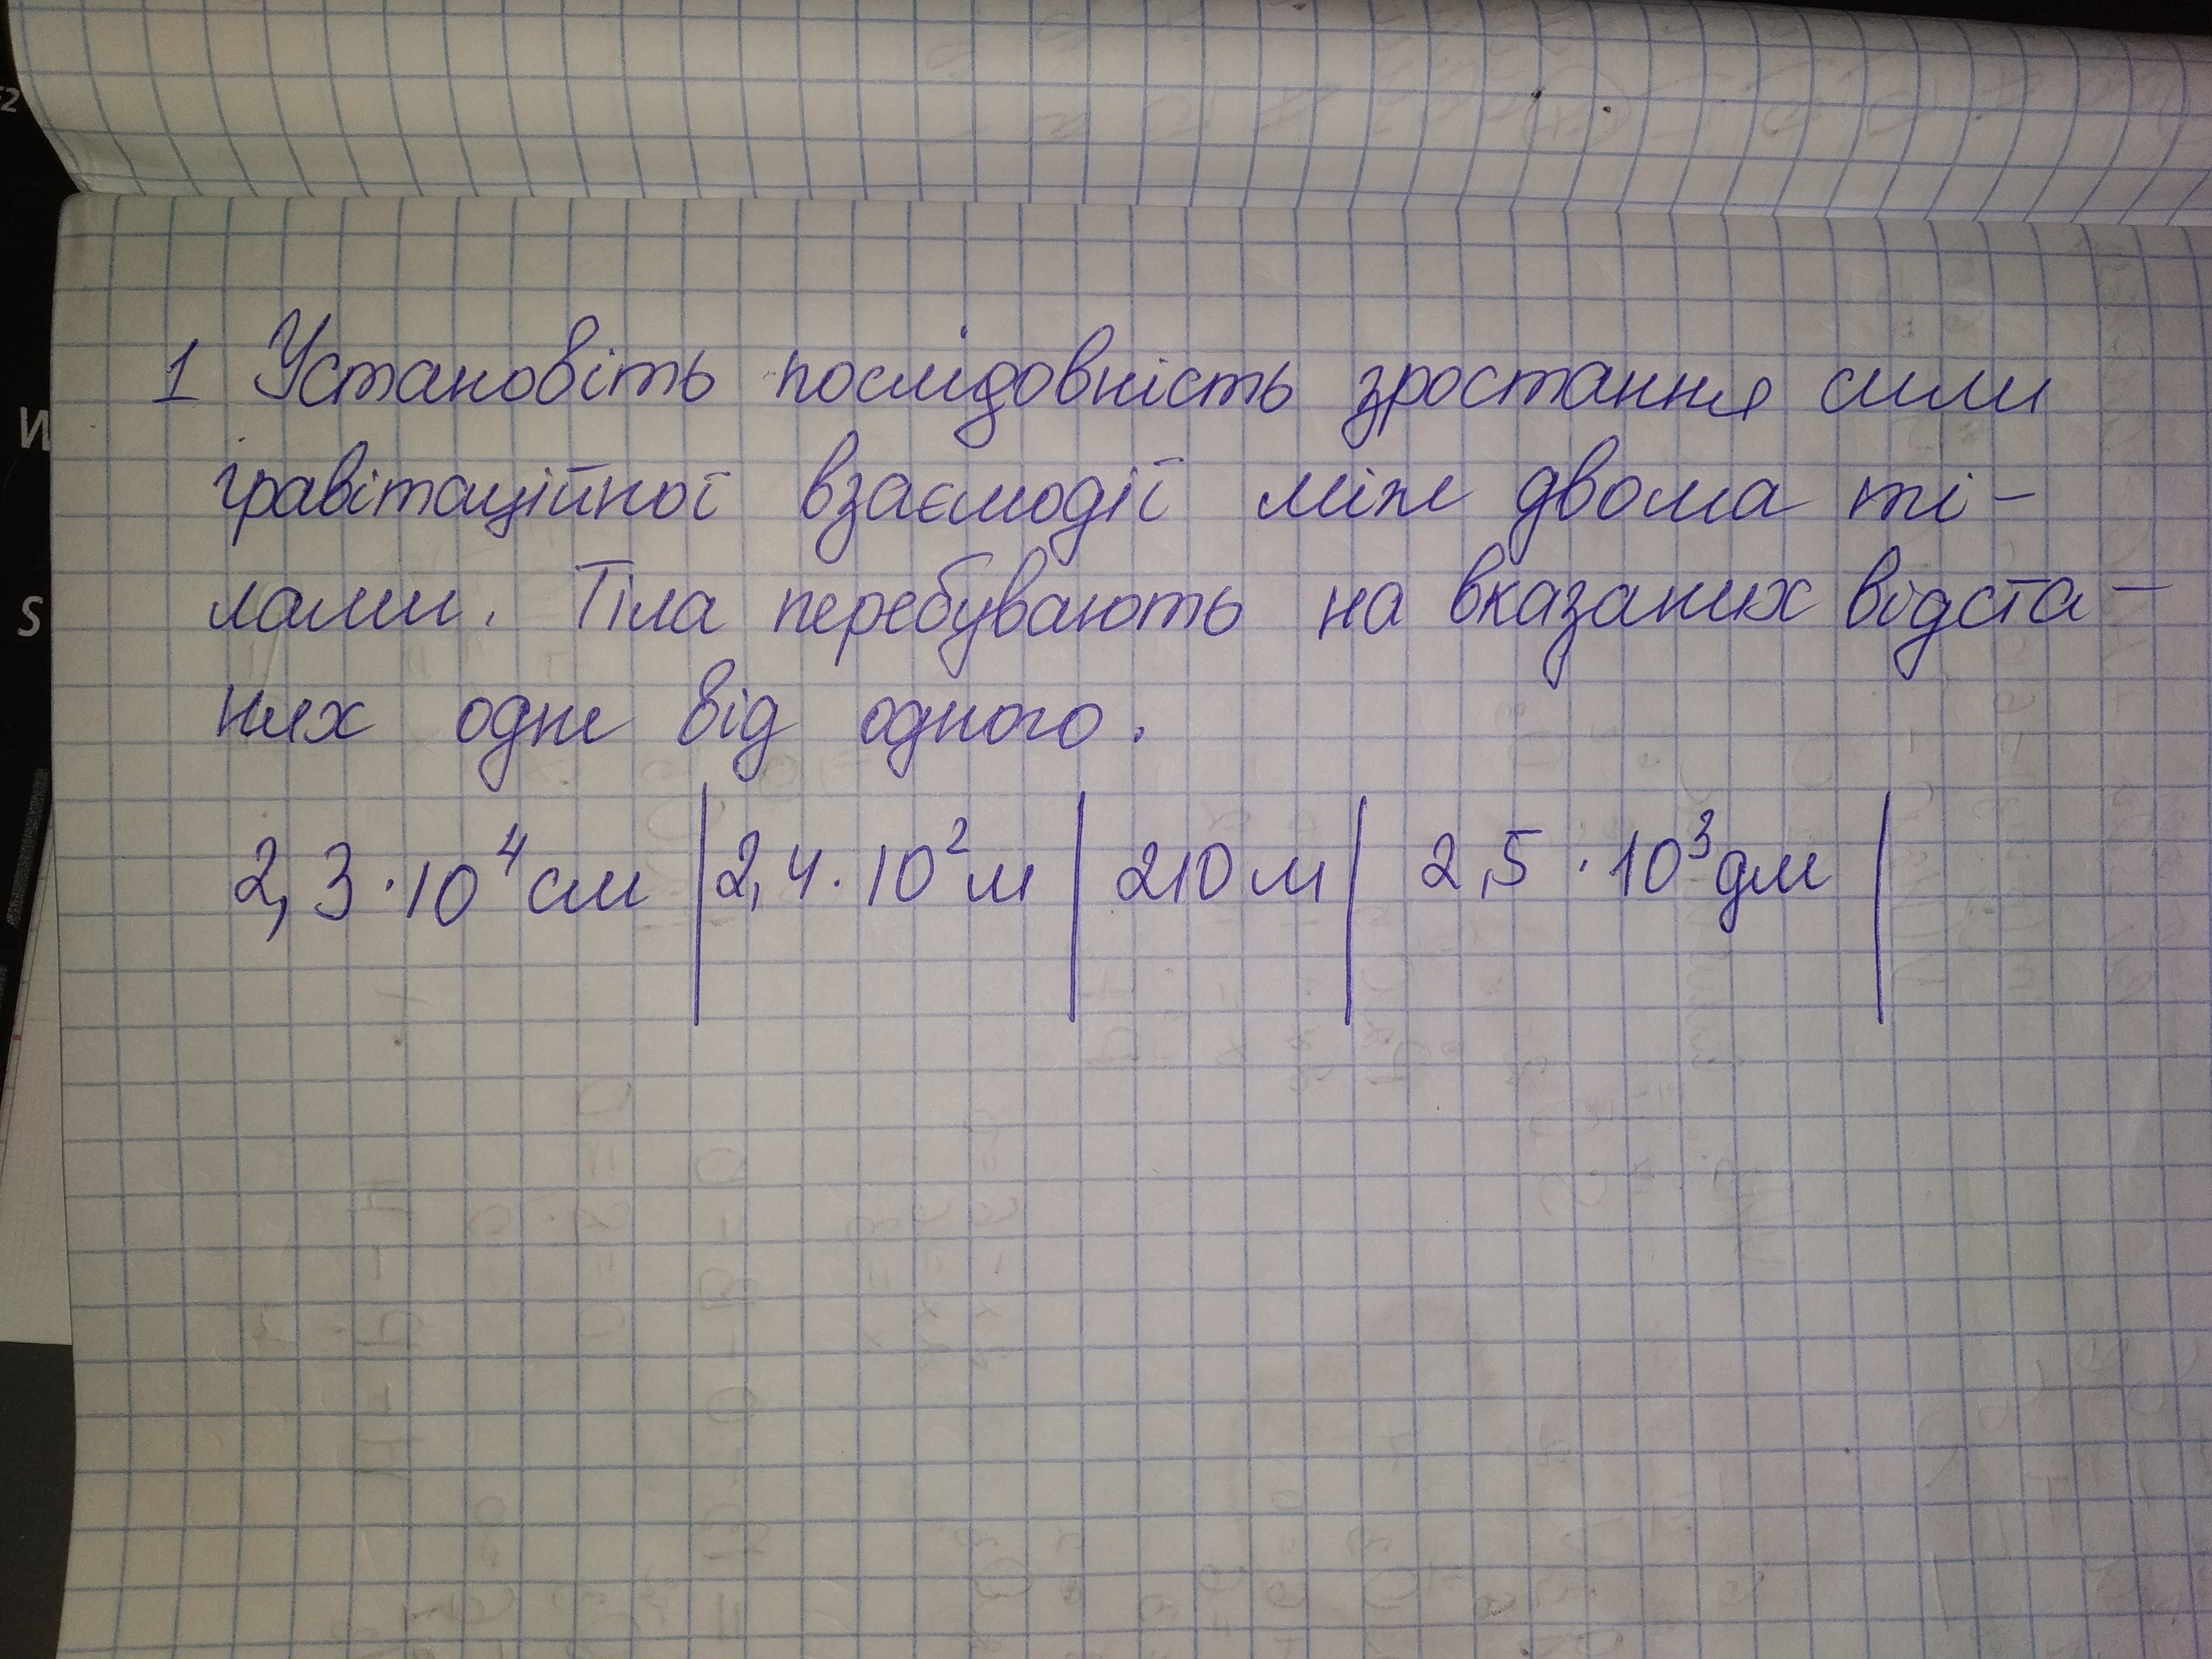 1 Установіть послідовність зростання сили
гравітаційної взаємодії між двома ті-
лами. Тіла перебувають на вказаних відста-
нях одне від одного.
2,3·10⁴ см | 2,4·10² м | 210 м | 2,5·10³ дм |